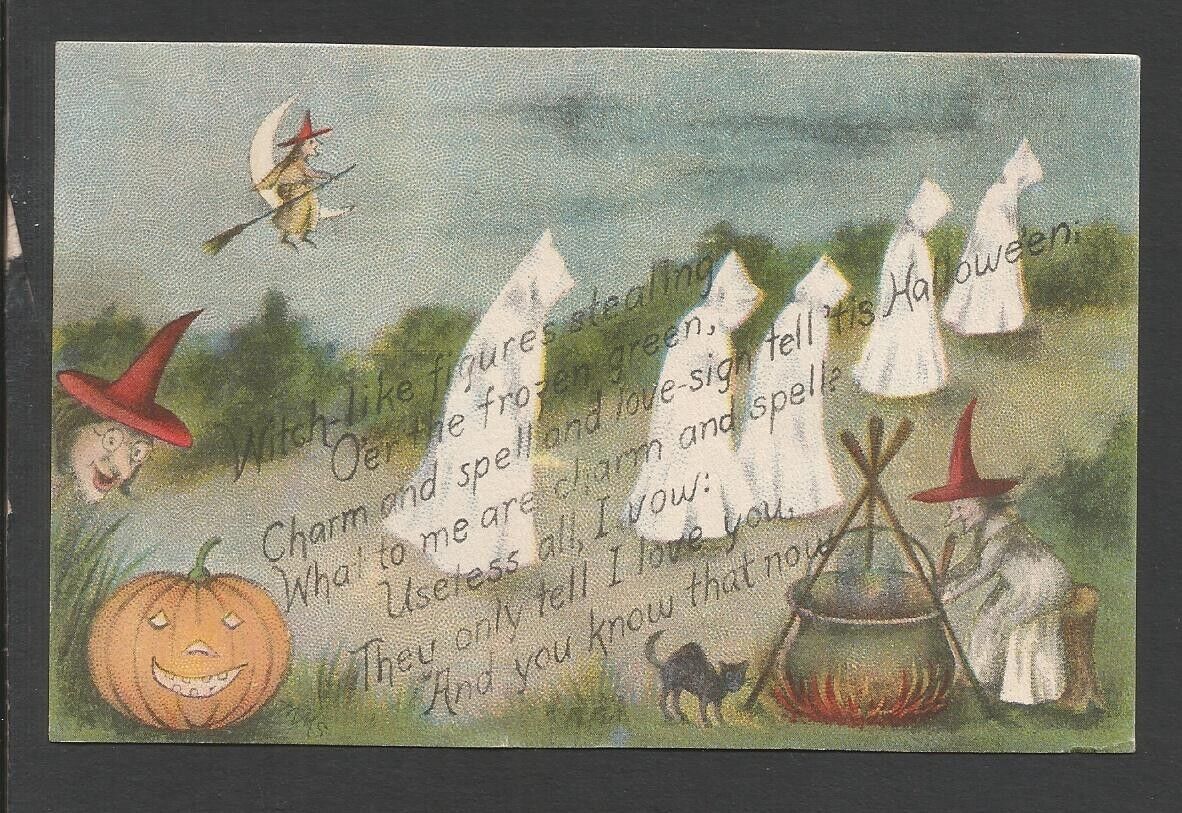 Witch-like figures stealing
O'er the frozen green,
Charm and spell and love-sign tell 'tis Hallowe'en;
What to me are charm and spell?
Useless all, I vow:
They only tell I love you,
And you know that now